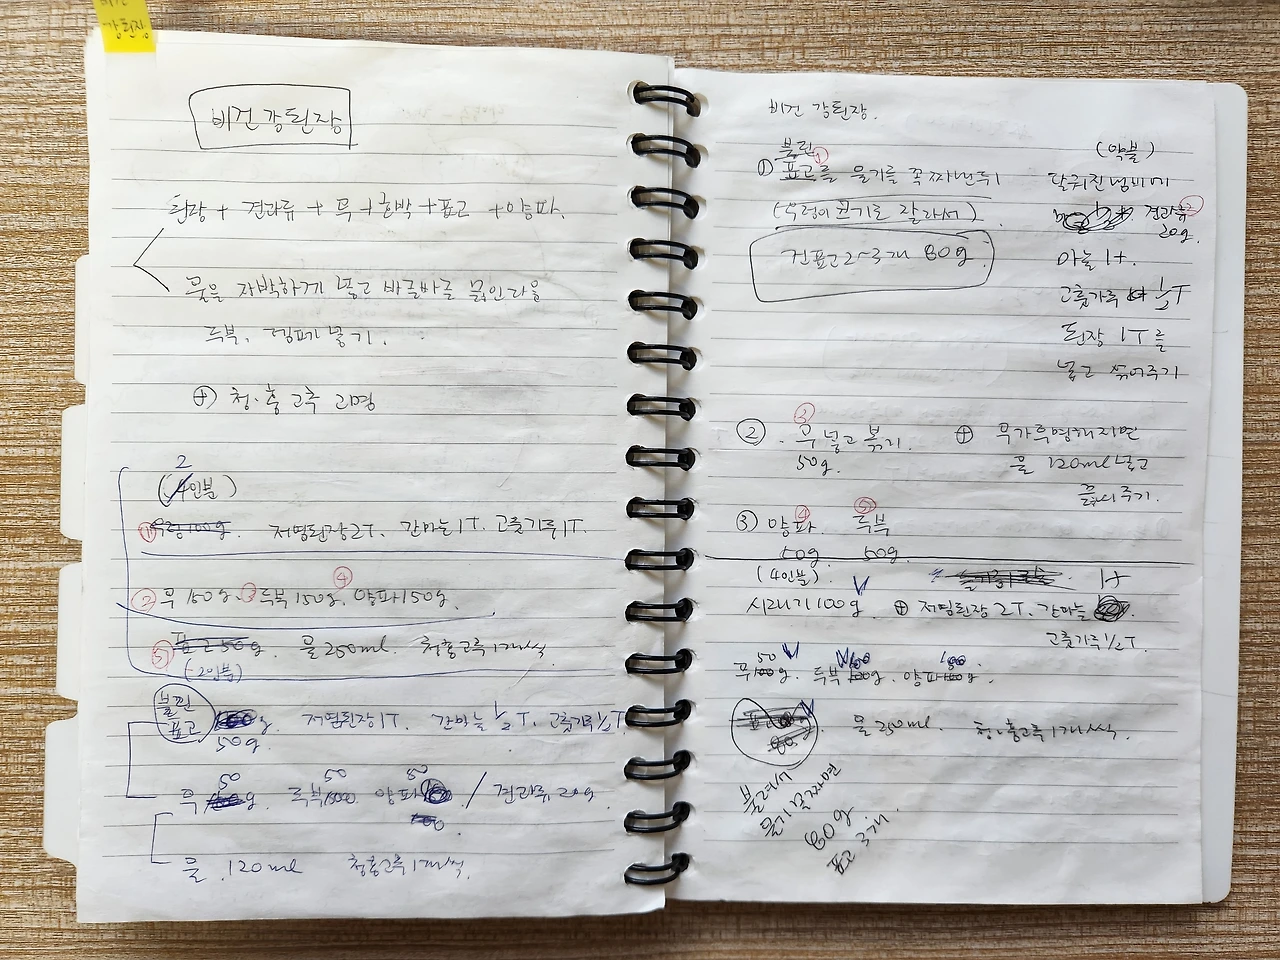 비건
강된장
비건 강된장
된장 + 견과류 + 무 + 호박 + 표고 + 양파.
물을 자박하게 넣고 바글바글 끓인다음
두부. 넣기.
⊕ 청·홍고추 고명
2
(4인분)
① 우렁100g. 저염된장2T. 간마늘1T. 고춧가루1T.
② 무150g. ③ 두부150g. ④ 양파150g.
⑤ 표고50g. 물250ml. 청홍고추1개씩.
(-2인분)
불린
표고 g. 저염된장1T. 간마늘 ½T. 고춧가루½T.
50g.
50 50 50
무 g. 두부100 양파 / 견과류 20g.
100
물 .120ml 청홍고추1개씩.
비건 강된장.
불린 ①
① 표고를 물기를 꼭 짜낸뒤
(우렁이크기로 잘라서)
건표고2~3개 60g
(약불)
달궈진냄비에
견과류 ②
20g.
마늘1t.
고춧가루 ½T
된장 1T를
넣고 볶아주기
② . ③ 무 넣고 볶기 ⊕ 무가투명해지면
50g. 물 120ml 넣고
끓여주기.
③ ④ 양파 ⑤ 두부
50g 50g.
(4인분). 1t
시래기100g ⊕ 저염된장2T. 간마늘 .
고춧가루½T.
50 100 100
무100g. 두부100g. 양파100g.
표고 물250ml. 청·홍고추1개씩.
60
불려서
물기꽉짜면
60g
표고 3개.